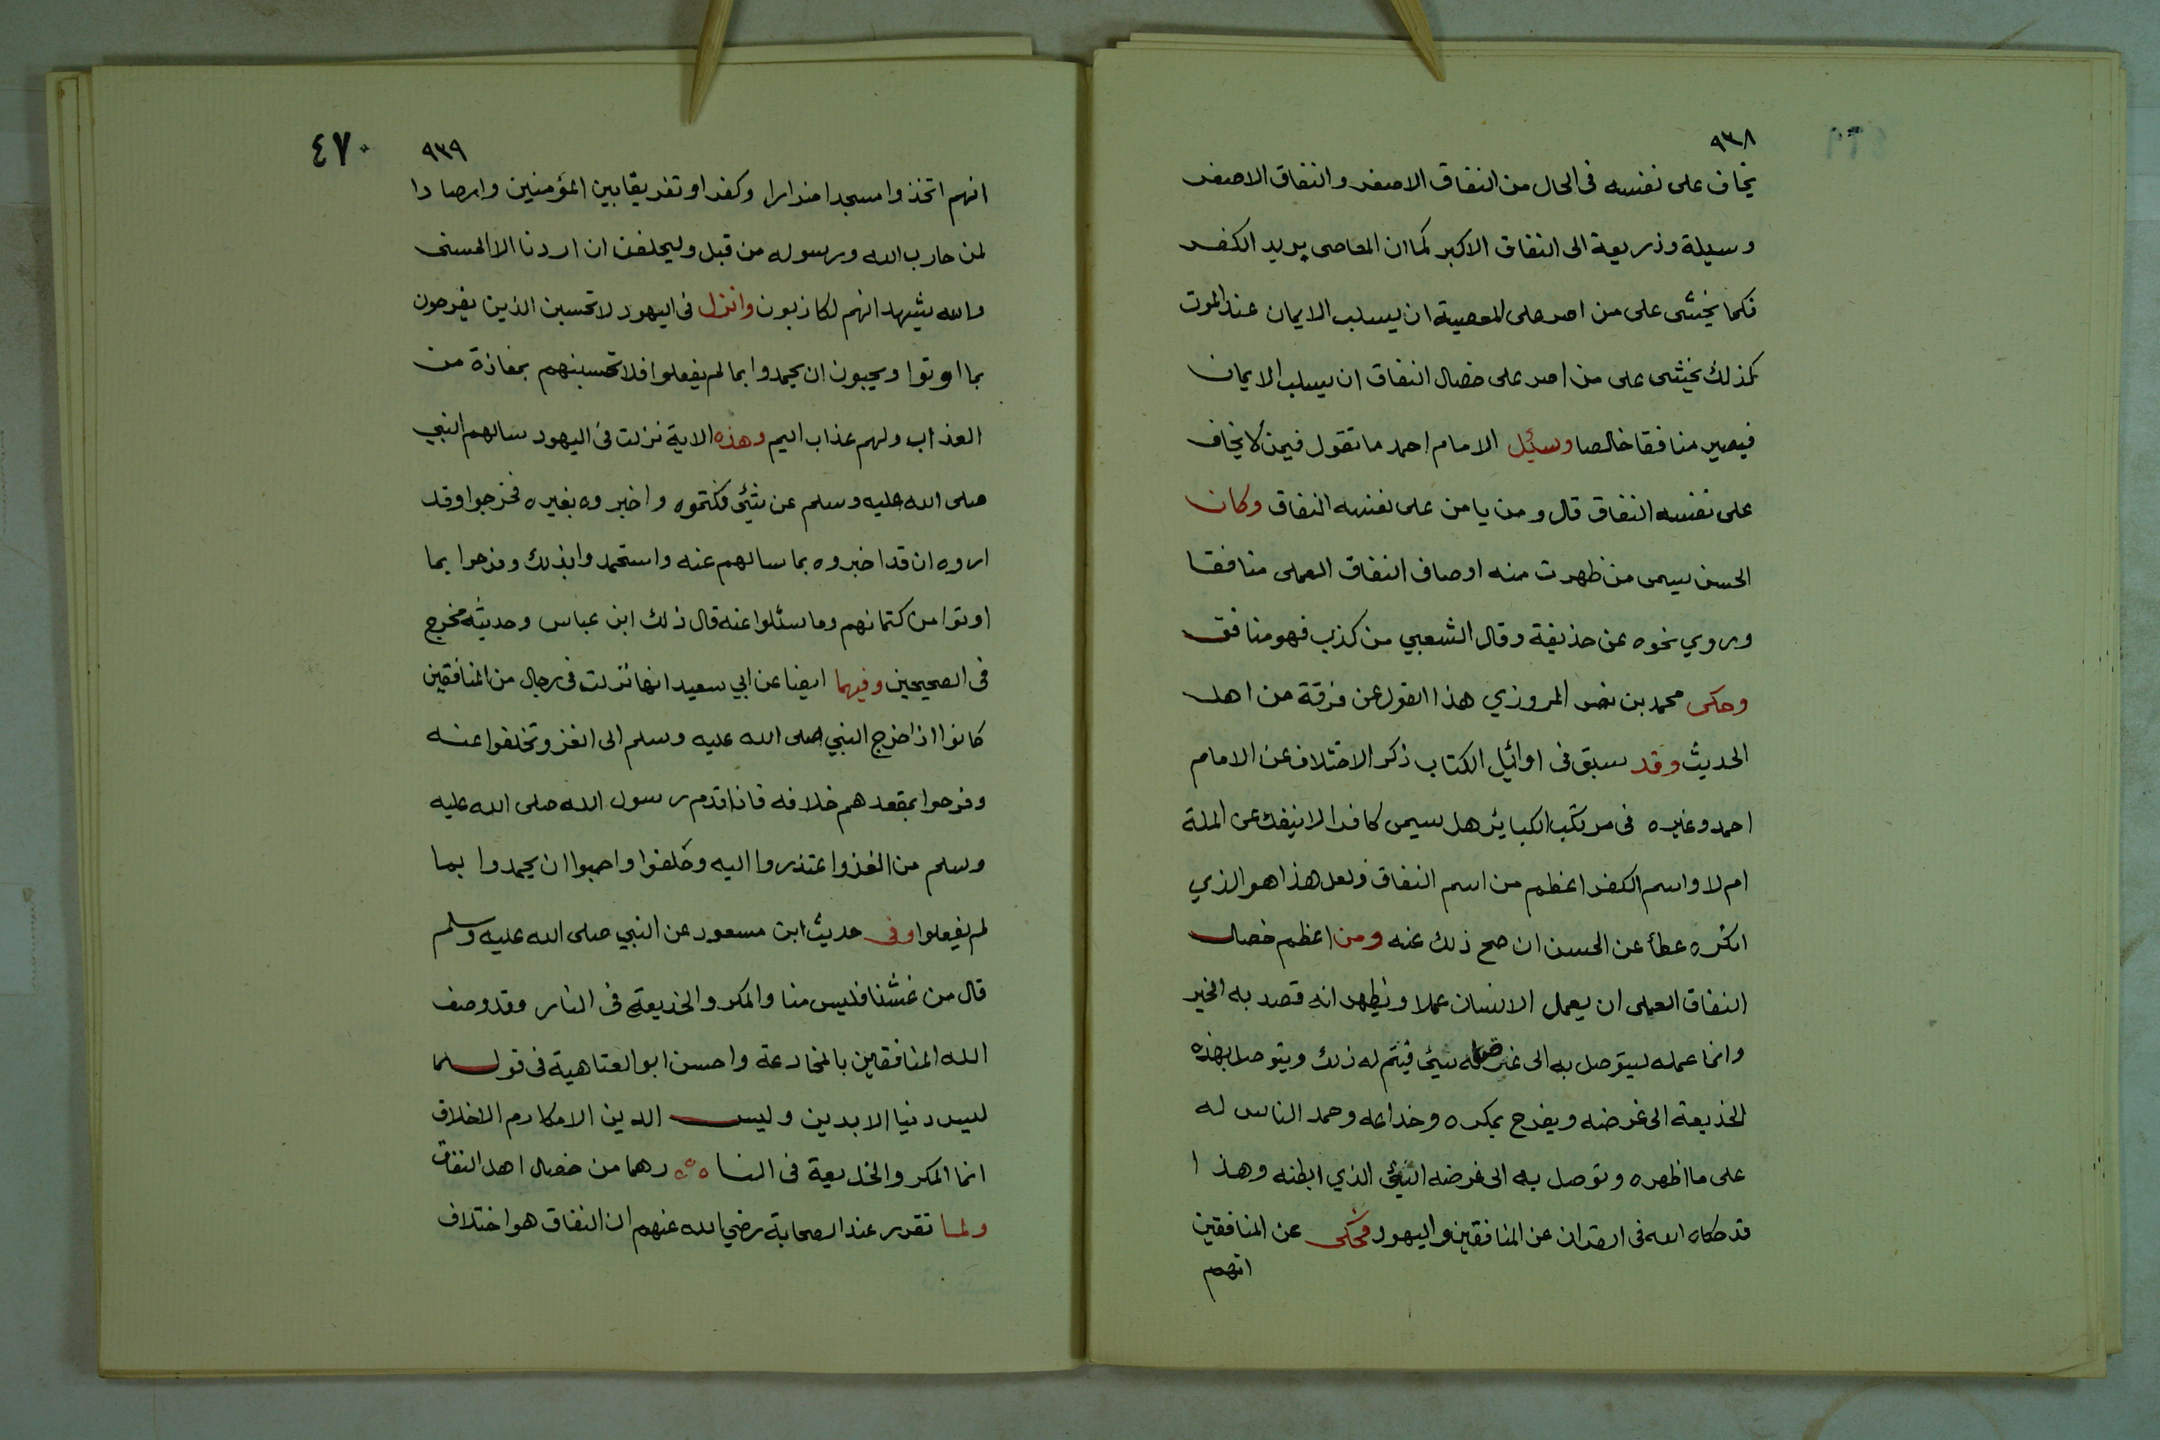 ٩٣٨
يخاف على نفسه فى الحال من النفاق الاصغر والنفاق الاصغر
وسيلة وذريعة الى النفاق الاكبر كما ان المعاصى بريد الكفر
فكما يخشى على من اصر على المعصية ان يسلب الايمان عند الموت
كذلك يخشى على من اصر على خصال النفاق ان يسلب الايمان
فيصير منافقا خالصا وسئيل الامام احمد ما تقول فيمن لا يخاف
على نفسه النفاق قال ومن يامن على نفسه النفاق وكان
الحسن يسمى من ظهرت منه اوصاف النفاق العملى منافقا
وروي نحوه عن حذيفة وقال الشعبي من كذب فهو منافق
وحكى محمد بن نصر المروزي هذا القول عن فرقة من اهل
الحديث وقد سبق فى اوائيل الكتاب ذكر الاختلاف عن الامام
احمد وغيره فى مرتكب الكبائر هل يسمى كافرا لا ينفك عن الملة
ام لا واسم الكفر اعظم من اسم النفاق ولعل هذا هو الذي
انكره عطأ عن الحسن ان صح ذلك عنه ومن اعظم خصال
النفاق العملى ان يعمل الانسان عملا ويظهر انه قصد به الخير
وانما عمله ليتوصل به الى غرض له سيئ فيتم له ذلك ويتوصل بهذه
الخديعة الى غرضه ويفرح بمكره وخداعه وحمد الناس له
على ما اظهره وتوصل به الى غرضه السيئ الذي ابطنه وهذا
قد حكاه الله فى القران عن المنافقين واليهود فحكى عن المنافقين
انهم
٤٧٠
٩٣٩
انهم اتخذوا مسجدا ضرارا وكفرا وتفريقا بين المؤمنين وارصادا
لمن حارب الله ورسوله من قبل وليحلفن ان اردنا الا الحسنى
والله يشهد انهم لكاذبون وانزل فى اليهود لا تحسبن الذين يفرحون
بما اوتوا ويحبون ان يحمدوا بما لم يفعلوا فلا تحسبنهم بمفازة من
العذاب ولهم عذاب اليم وهذه الاية نزلت فى اليهود سالهم النبي
صلى الله عليه وسلم عن شيئ فكتموه واخبروه بغيره فخرجوا وقد
اروه ان قد اخبروه بما سالهم عنه واستحمدوا بذلك وفرحوا بما
اوتوا من كتمانهم وما سئلوا عنه قال ذلك ابن عباس وحديثه مخرج
فى الصحيحين وفيهما ايضا عن ابي سعيد انها نزلت فى رجال من المنافقين
كانوا اذا خرج النبي صلى الله عليه وسلم الى الغزو تخلفوا عنه
وفرحوا بمقعدهم خلافه فاذا قدم رسول الله صلى الله عليه
وسلم من الغزو اعتذروا اليه وحلفوا واحبوا ان يحمدوا بما
لم يفعلوا وفى حديث ابن مسعود عن النبي صلى الله عليه وسلم
قال من غشنا فليس منا والمكر والخديعة فى النار وقد وصف
الله المنافقين بالمخادعة واحسن ابو العتاهية فى قوله
ليس دنيا الا بدين وليس الدين الا مكارم الاخلاق
انما المكر والخديعة فى النا ر هما من خصال اهل النفاق
ولما تقرر عند الصحابة رضي الله عنهم ان النفاق هو اختلاف